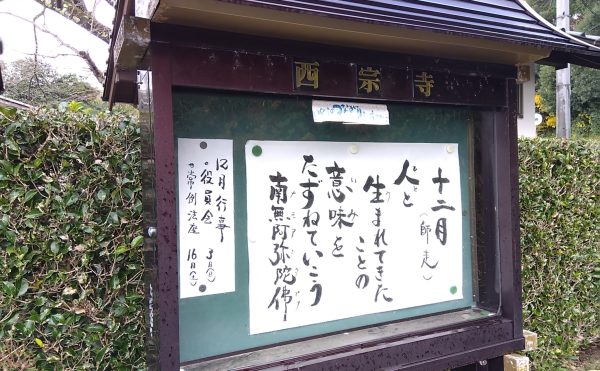 西宗寺
十二月(師走)
人と
生まれてきた
ことの
意味を
たずねていこう
南無阿弥陀佛
12月行事
・役員会 3日㈰
・常例法座 16日㈯